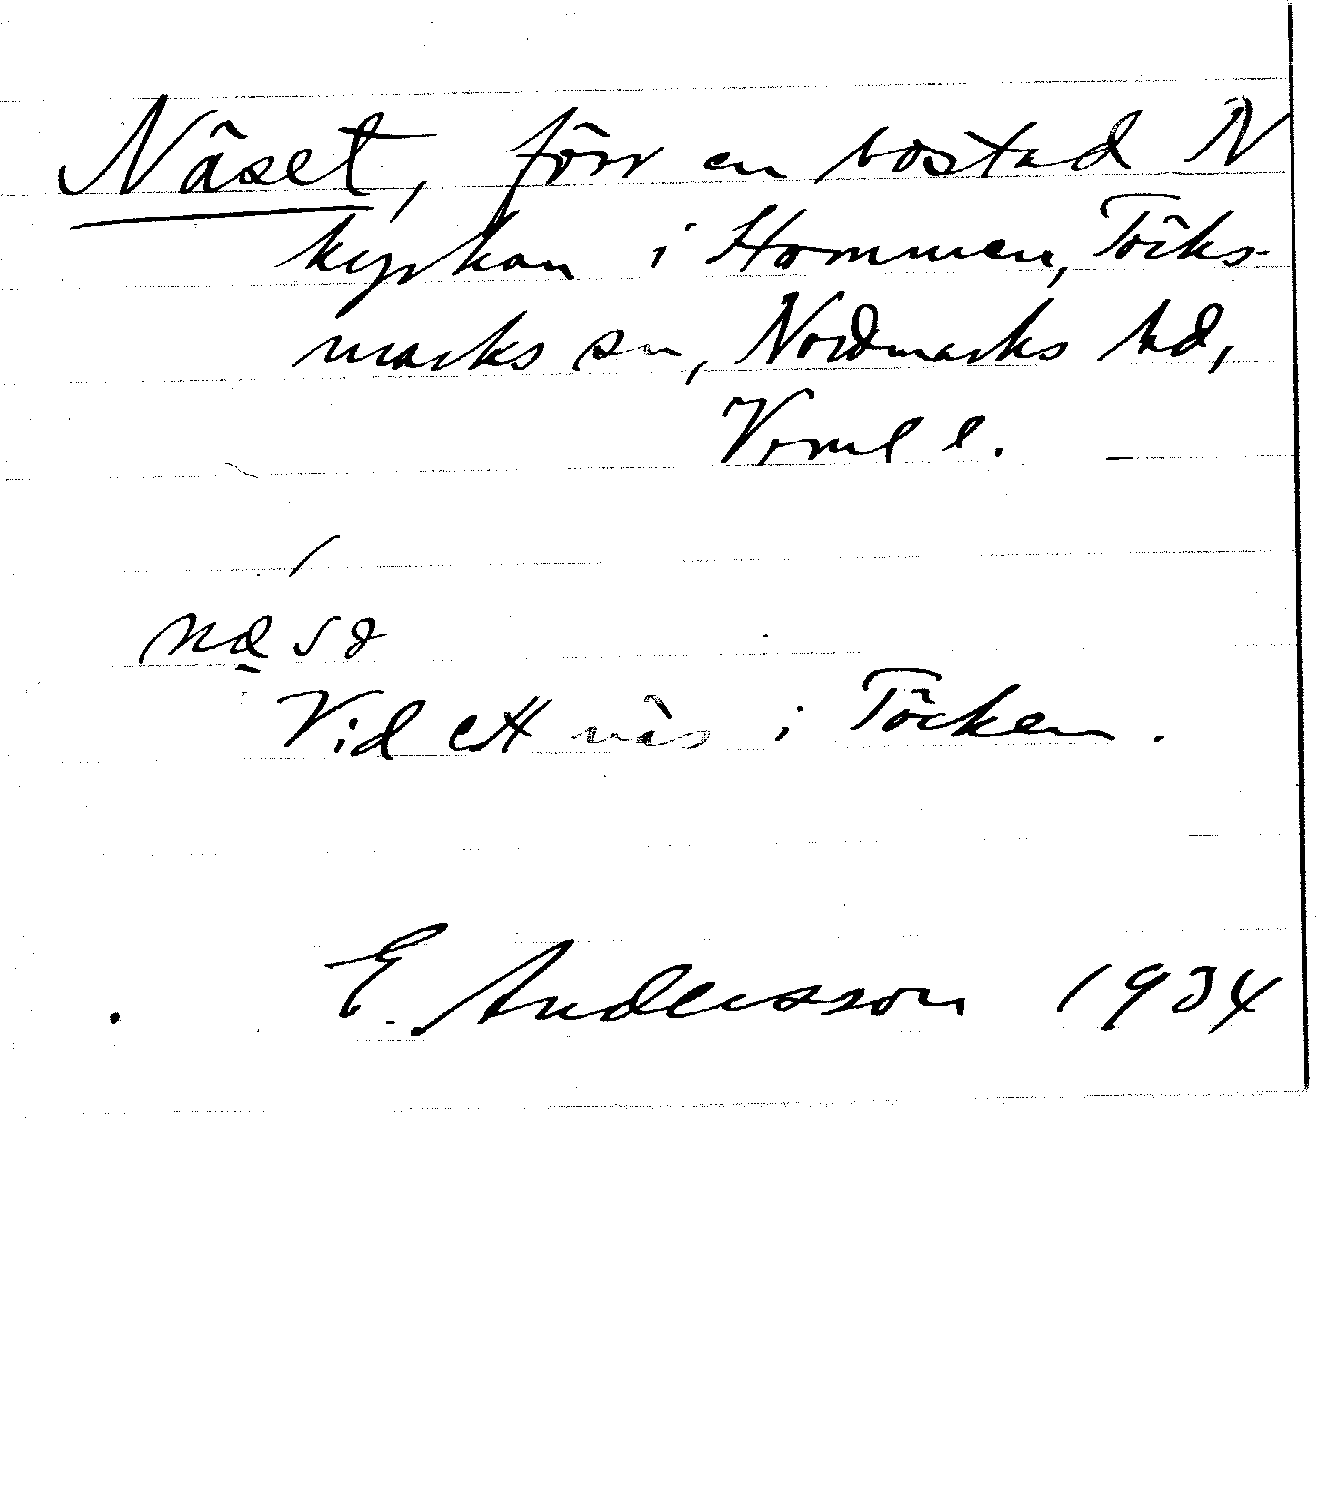 Näset, förr en bostad N
kyrkan i Hommen, Töcks-
marks sn, Nordmarks hd,
Vrml l.
næ̲sə
Vid ett näs i Töcken.
E. Andersson 1934